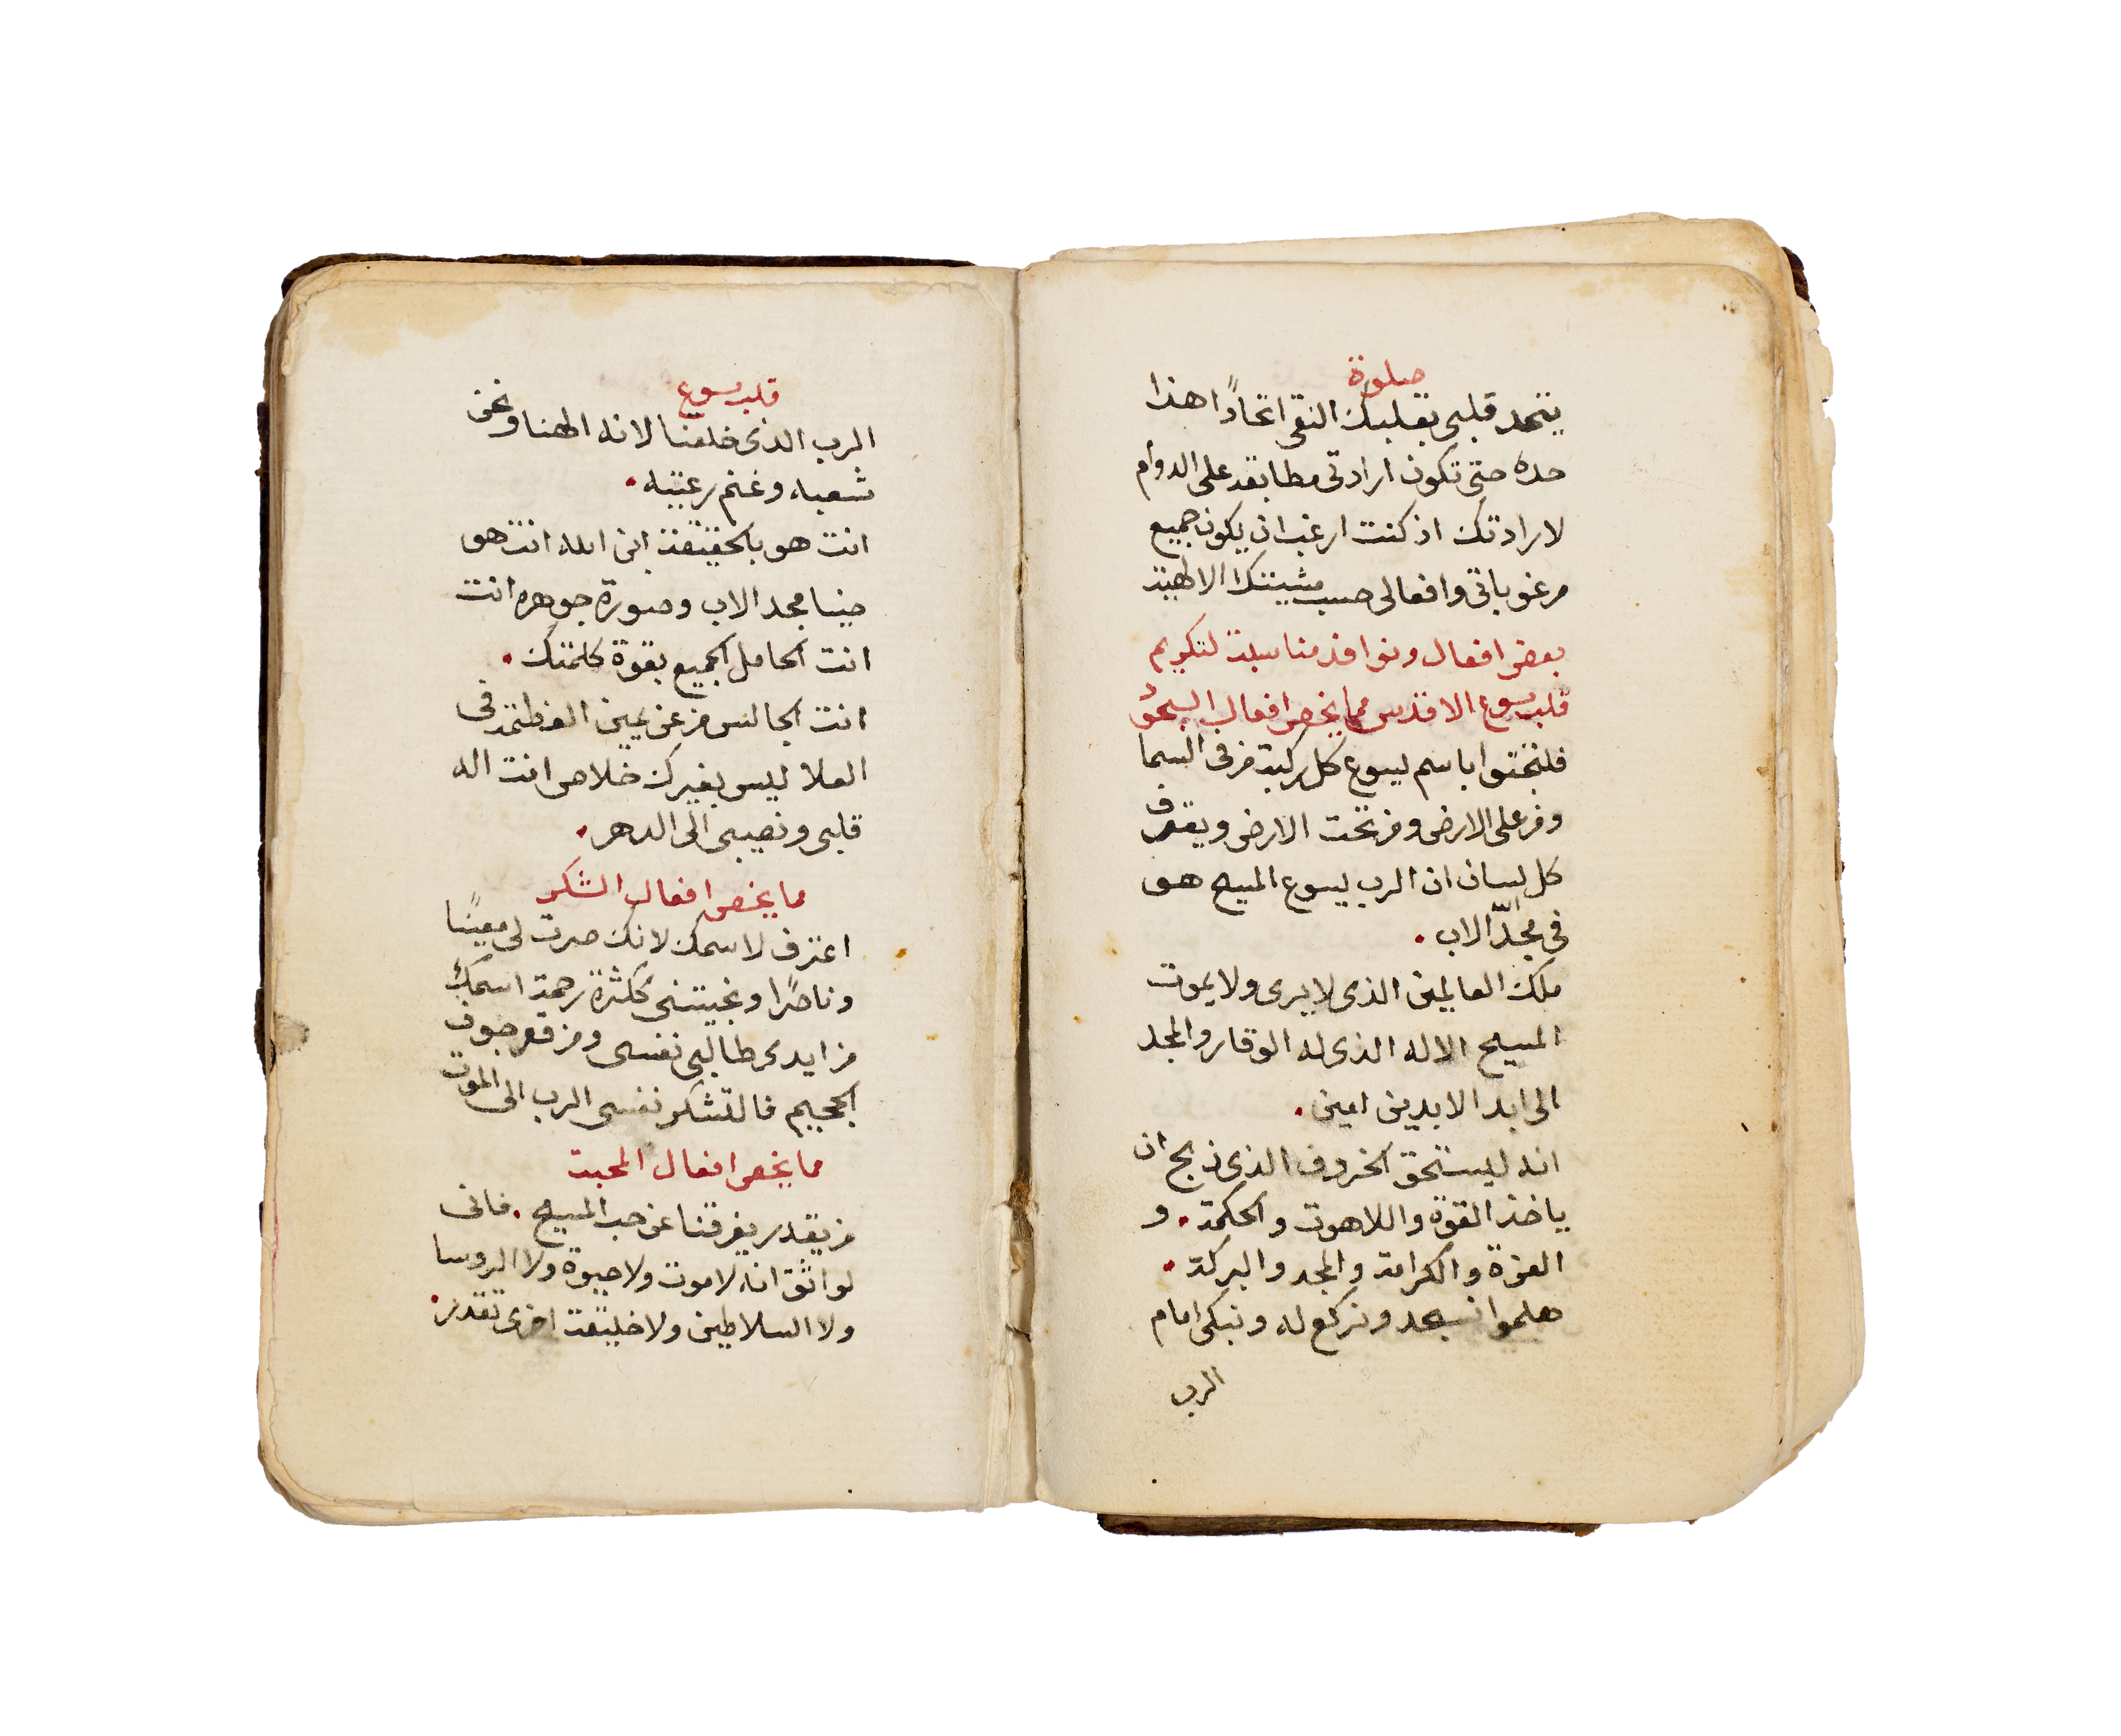 صلوة
يتحد قلبى بقلبك النقى اتحادًا هذا
حده حتى تكون ارادتى مطابقة على الدوام
لارادتك اذ كنت ارغب ان يكون جميع
مرغوباتى وافعالى حسب مشيتك الالهية
بعض افعال ونوافذ مناسبة لتكريم
قلب يسوع الاقدس مما يخص افعال السجود
فلتجثوا باسم ليسوع كل ركبة من فى السما
ومن على الارض ومن تحت الارض ويعترف
كل لسان ان الرب ليسوع المسيح هو
فى مجد الاب.
ملك العالمين الذى لا يرى ولا يموت
المسيح الاله الذى له الوقار والمجد
الى ابد الابدين امين.
انه ليستحق الخروف الذى ذبح ان
ياخذ القوة واللاهوت والحكمة. و
العزة والكرامة والمجد والبركة.
هلموا نسجد ونركع له ونبكى امام
الرب
قلب يسوع
الرب الذى خلقنا لانه الهنا ونحن
شعبه وغنم رعيته.
انت هو بالحقيقة ابن الله انت هو
ضيا مجد الاب وصورة جوهره انت
انت الحامل الجميع بقوة كلمتك.
انت الجالس من عن يمين العظمة فى
العلا ليس بغيرك خلاص انت اله
قلبى ونصيبى الى الدهر.
مما يخص افعال الشكر
اعترف لاسمك لانك صرت لى معينًا
وناصرًا ونجيتنى ككثرة رحمة اسمك
من ايدى طالبى نفسى ومن قعر جوف
الجحيم فالتشكر نفسى الرب الى الموت
مما يخص افعال المحبة
من يقدر يفرقنا عن حب المسيح. فانى
لواثق انه لا موت ولا حيوة ولا الروسا
ولا السلاطين ولا خليقة اخرى تقدر.